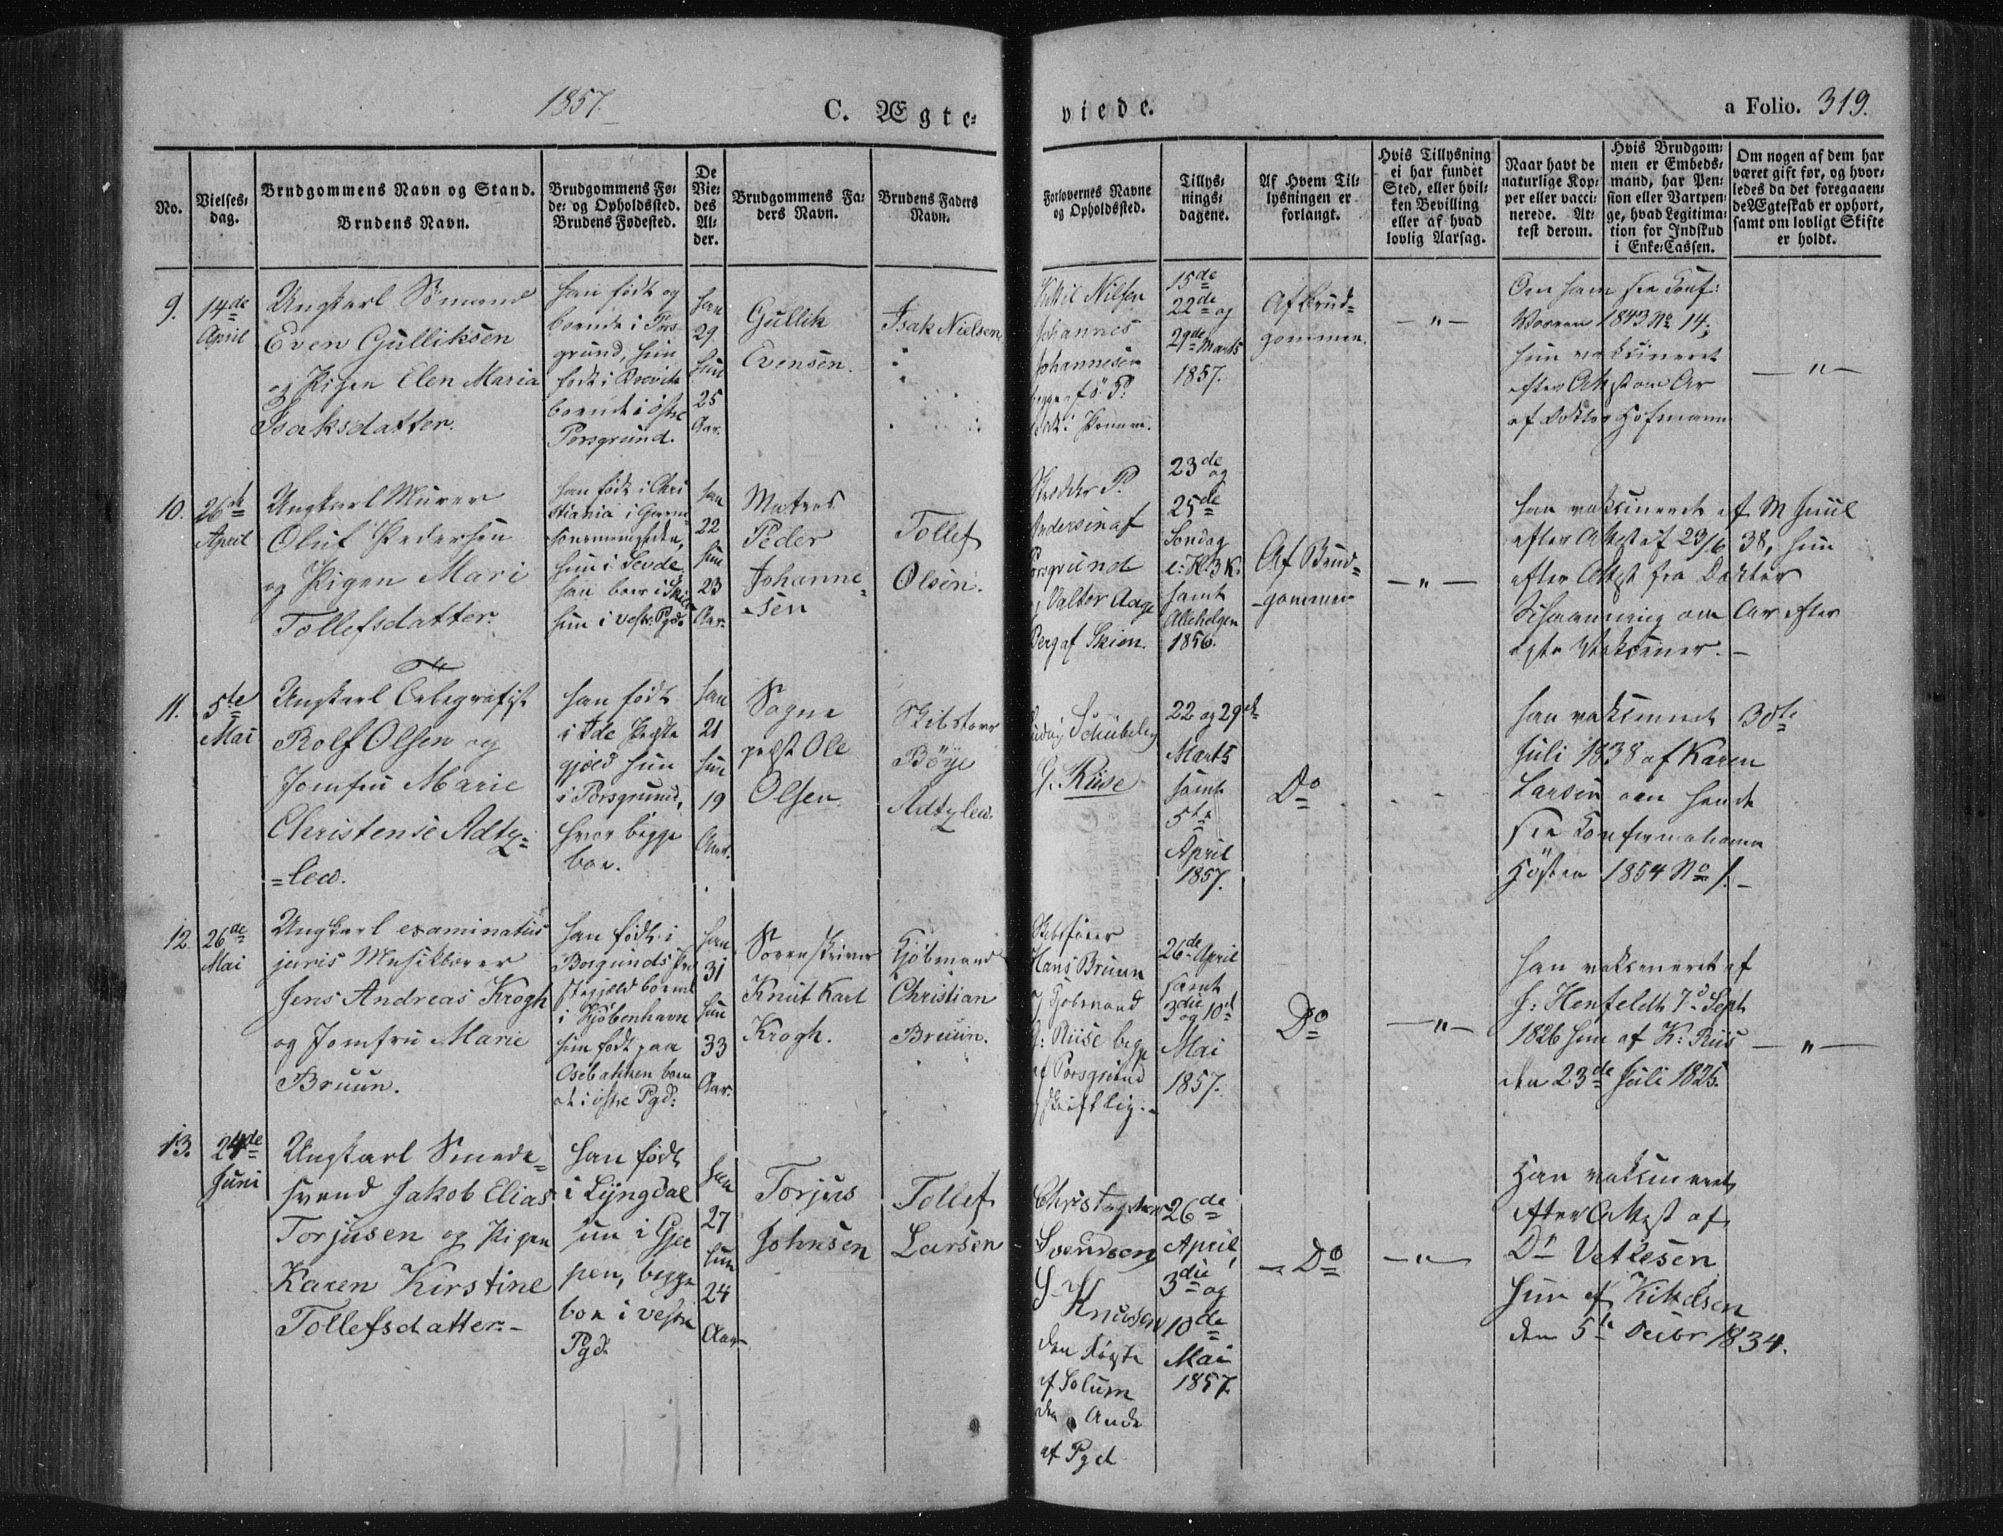 1857.
C. Ægte-
viede.
a Folio. 319.
No.
Vielses-
dag.
Brudgommens Navn og Stand.
Brudens Navn.
Brudgommens Fø-
de- og Opholdssted.
Brudens Fødested.
De
Vie-
des
Al-
der.
Brudgommens Fa-
ders Navn.
Brudens Faders
Navn.
Forlovernes Navne
og Opholdssted.
Tillys-
nings-
dagene.
Af Hvem Til-
lysningen er
forlangt.
Hvis Tillysning
ei har fundet
Sted, eller hvil-
ken Bevilling
eller af hvad
lovlig Aarsag.
Naar havt de
naturlige Kop-
per eller vacci-
nerede. At-
test derom.
Hvis Brudgom-
men er Embeds-
mand, har Pen-
sion eller Vartpen-
ge, hvad Legitima-
tion for Indskud
i Enke-Cassen.
Om nogen af dem har
været gift før, og hvor-
ledes da det foregaaen-
de Ægteskab er ophørt,
samt om lovligt Skifte
er holdt.
9.
14de
April
Ungkarl Sömand
Even Gulliksen
og Pigen Elen Maria
Isaksdatter.
han födt og
boende i Pors-
grund, hun
födt i Brevik
boende i östre
Porsgrund.
han
29
hun
25
Aar.
Gullik
Evensen.
Isak Nielsen
Nilsen
Johannes
Johannesen
15de
22de og
29de Marts
1857.
Af Brud-
gommen.
— " —
Om ham see Conf:
1843 No 14;
hun vaksineret
efter Attest om Ar
af Doktor Hofmann
— " —
10.
26de
April
Ungkarl Murer
Oluf Pedersen
og Pigen Mari
Tollefsdatter.
han födt i Chri
stiania i Garni-
sonsmenigheden,
hun i Sevde,
han boer i Skien
hun i vestre Pgd.
han
22
hun
23
Aar.
Peder
Johanne-
-sen
Tollef
Olsen.
P.
Andersen af
Porsgrund
og Valtor Aage
Berg af Skien.
23de og
25de
Söndag
e: H: 3 K:
samt
Allehelgen
1856.
Af Brud-
-gommen
— " —
han vaksineret af M Juul
efter Attest af 23/6 38, hun
efter Attest fra Doktor
om Ar efter
egte Vaksiner. —
11.
5te
Mai
Ungkarl Telegrafist
Rolf Olsen og
Jomfru Marie
Christense Adty-
=lew.
han födt
i Ide Præste
gjeld hun
i Porsgrund,
hvor begge
boe.
han
21
hun
19
Aar.
Sogne
præst Ole
Olsen.
Böye
Adtylew.
Schübeler
G. Riise
22 og 29de
Marts
samt
5te
April
1857.
Do
han vaksineret 30te
Juli 1838 af Karen
Larsen om hende
see Konfirmationen
Hösten 1854 No 1. —
12
26de
Mai
Ungkarl examinatus
juris Musiklærer
Jens Andreas Krogh
og Jomfru Marie
Bruun.
han födt i
Borgunds Præ
stegjeld boende
i Kjöbenhavn
hun födt paa
Osebakken boen
de i östre Pgd:
han
31
hun
33
Aar.
Sorenskriver
Knut Karl
Krogh.
Kjöbmand
Christian
Bruun.
Skibsförer
Hans Bruun
og Kjöbmand
G: Riise begge
af Porsgrund
skriftlig. -
26de April
samt
3die og 10de
Mai
1857.
Do
— " —
han vaksineret af
J: Henfeldt 7d Sept
1826 hun af K: Riis
den 23de Juli 1825.
— " —
13.
24de
Juni
Ungkarl Smede-
svend Jakob Elias
Torjusen og Pigen
Karen Kirstine
Tollefsdatter. —
han födt
i Lyngdal
hun i Gjer
pen, begge
boe i vestre
Pgd.
han
27
hun
24
Aar.
Torjus
Johnsen
Tollef
Larsen
Christopher
Svendsen
Knudsen
den förste
af Solum
den Anden
af Pgd
26de
April,
3die og
10de
Mai
1857.
— Do
— " —
Han vaksineret
efter Attest af
Dr Vetlesen
hun af Kittelsen
den 5te Decbr 1834.